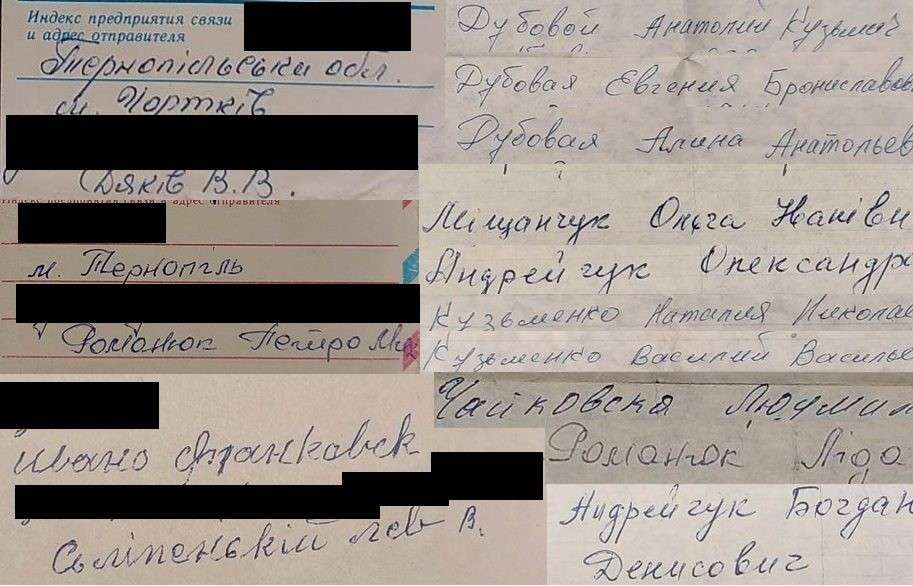 Индекс предприятия связи
и адрес отправителя
Тернопільська обл.
м. Чортків
Дяків В.В.
Индекс предприятия связи и адрес отправителя
м. Тернопіль
Романюк Петро
Ивано Франковск
лев В.
Дубовой Анатолий Кузьмич
Дубовая Евгения Брониславов
Дубовая Алина Анатольев
Міщанчук Ольга Іванівн
Андрейчук Олександр
Кузьменко Наталия Николае
Кузьменко Василий Василье
Чайковська Людмил
Романюк Ліда
Андрейчук Богдан
Денисович